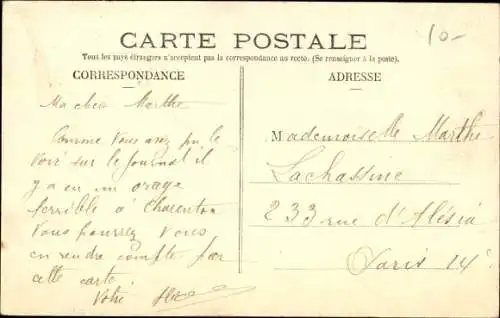 CARTE POSTALE
10-
Tous les pays étrangers n'acceptent pas la correspondance au recto. (Se renseigner à la poste).
CORRESPONDANCE
Ma chère Marthe
Comme vous avez pu le
voir sur le Journal il
y a eu un orage
terrible à Charenton
Vous pourrez vous
en rendre compte par
cette carte.
Votre
ADRESSE
Mademoiselle Marthe
Lachassine
233 rue d'Alésia
Paris 14e